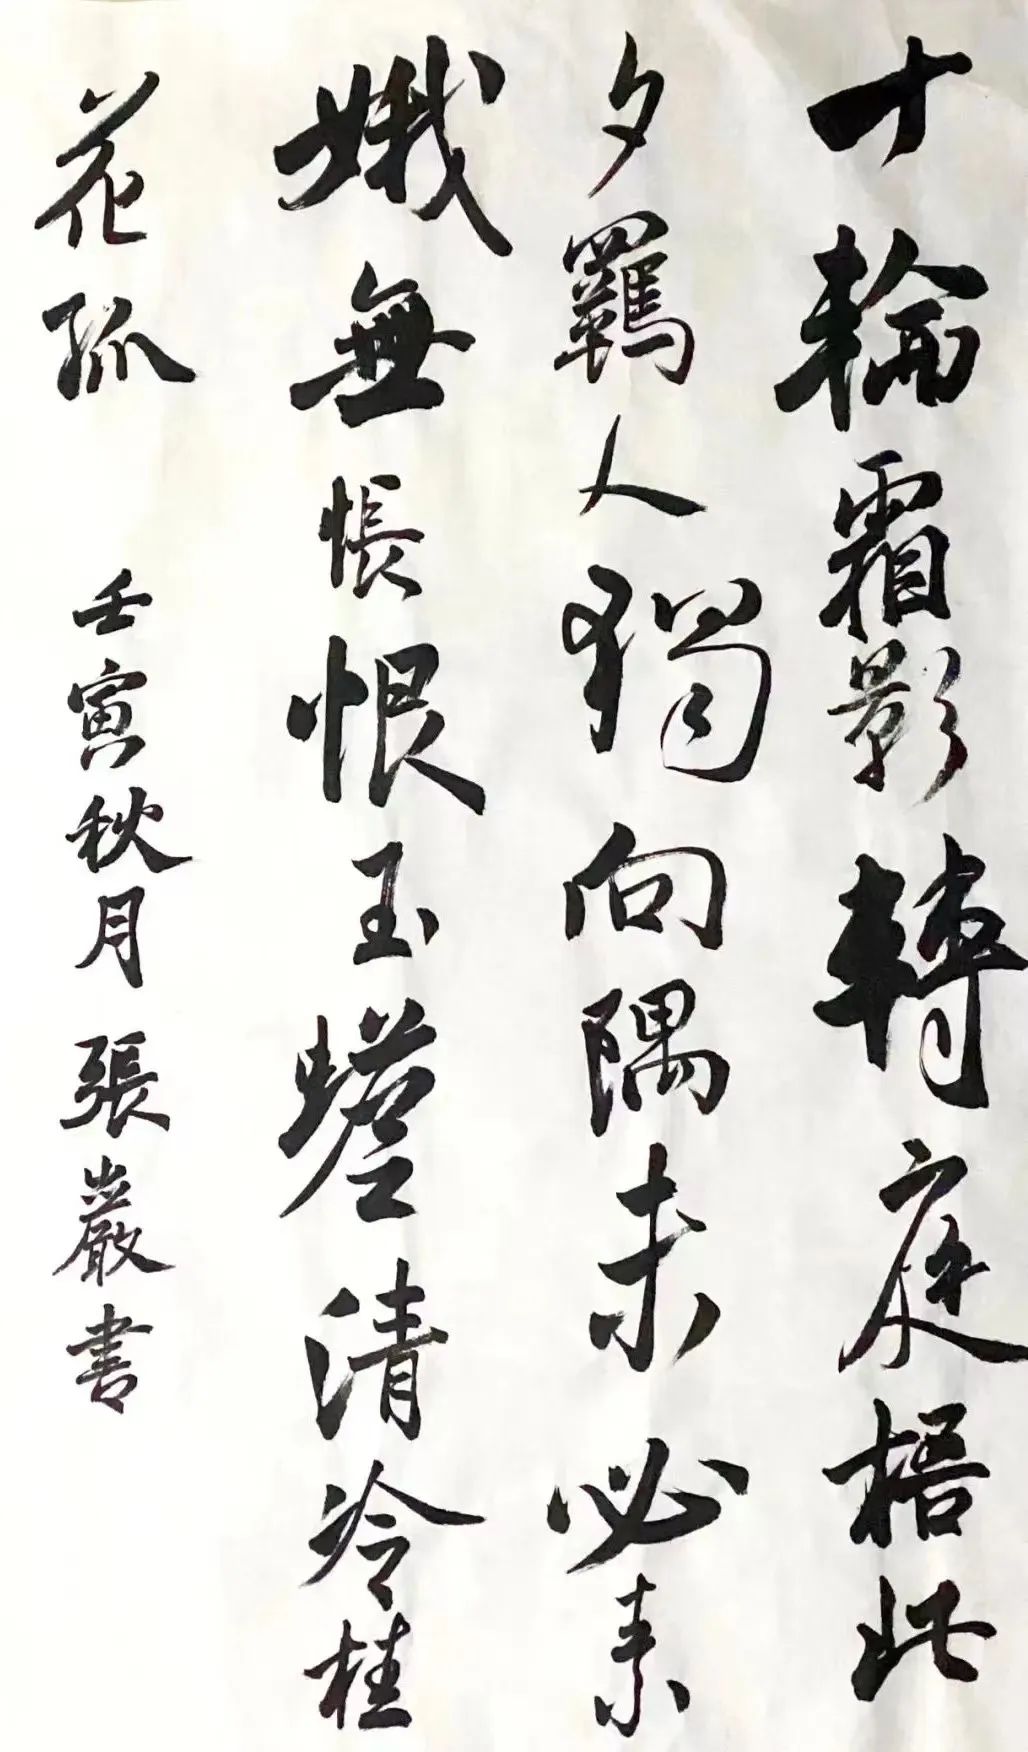 十輪霜影轉庭梧此
夕羈人獨向隅未必素
娥無悵恨玉蟾清冷桂
花孤
壬寅秋月張巖書